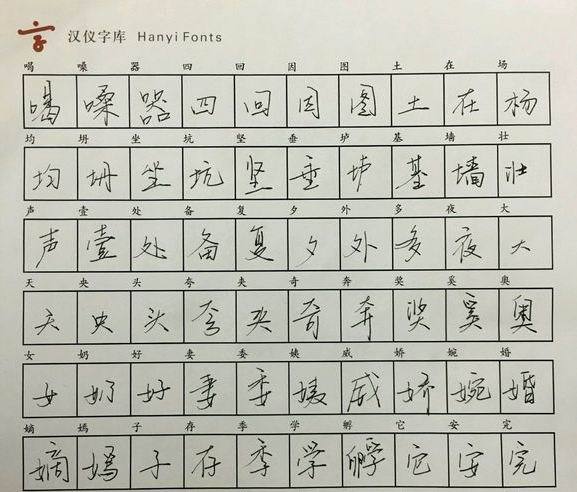 汉仪字库 HanyiFonts
喝 嗓 器 四 回 因 图 土 在 场
喝 嗓 器 四 回 因 图 土 在 场
均 坍 坐 坑 坚 垂 垆 基 墙 壮
均 坍 坐 坑 坚 垂 垆 基 墙 壮
声 壹 处 备 复 夕 外 多 夜 大
声 壹 处 备 复 夕 外 多 夜 大
天 央 头 夸 夹 奇 奔 奖 奚 奥
天 央 头 夸 夹 奇 奔 奖 奚 奥
女 奶 好 妻 委 姨 威 娇 婉 婚
女 奶 好 妻 委 姨 威 娇 婉 婚
嫡 嫣 子 存 季 学 孵 它 安 完
嫡 嫣 子 存 季 学 孵 它 安 完